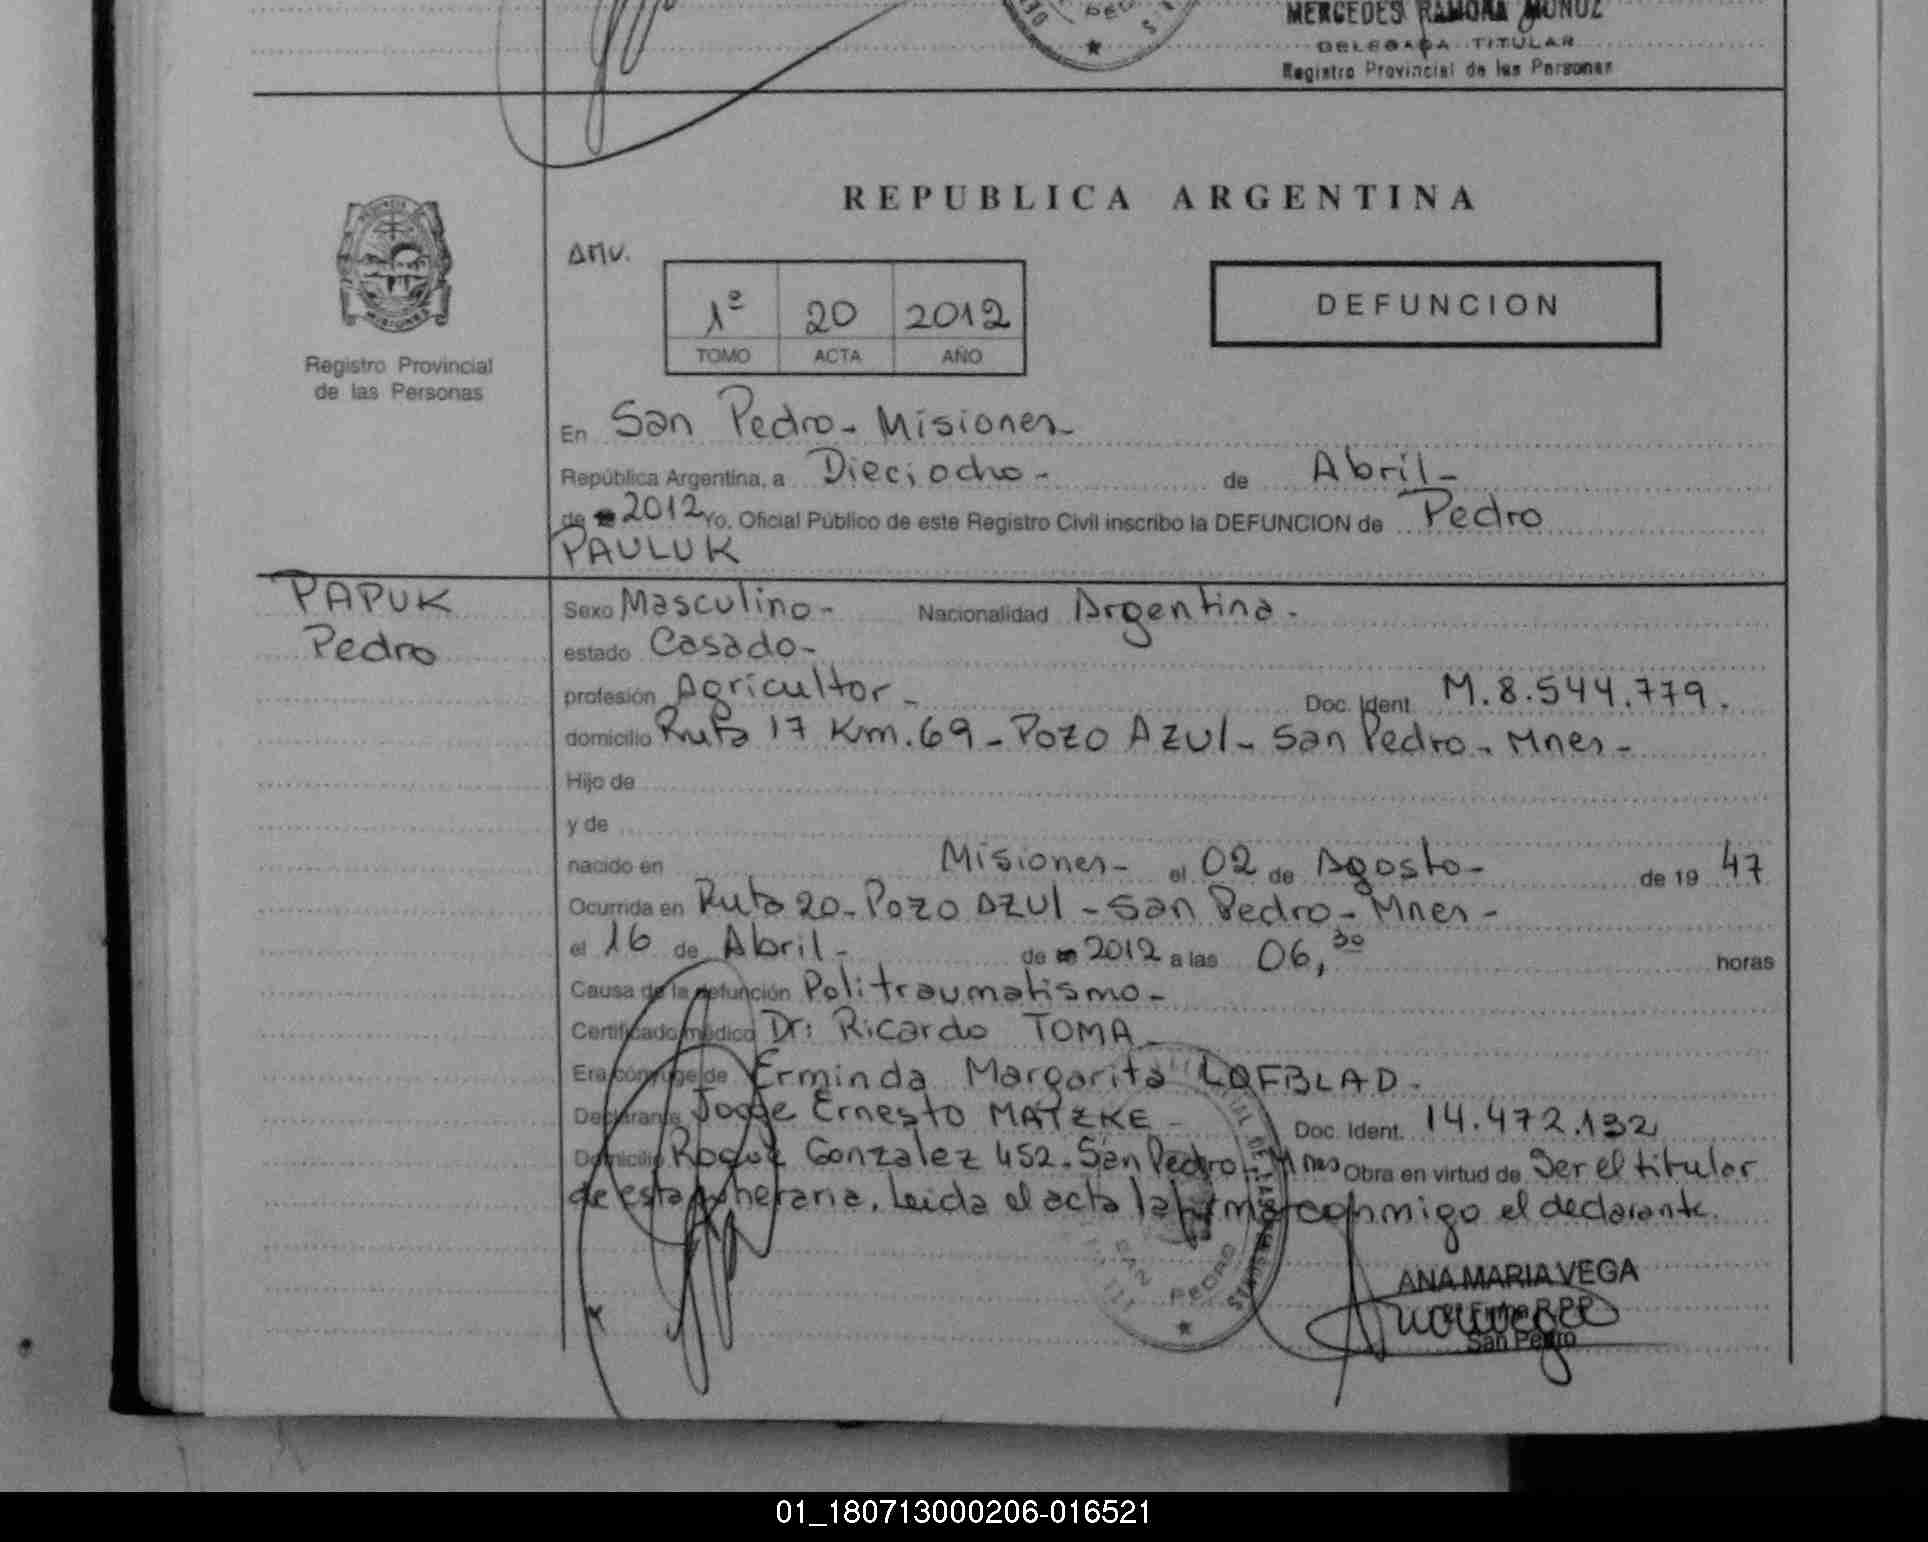 MERCEDES RAMONA MUÑOZ
DELEGADA TITULAR
Registro Provincial de las Personas
PROVINCIA
MISIONES
Registro Provincial
de las Personas
REPUBLICA ARGENTINA
AMV.
1º 20 2012
TOMO ACTA AÑO
DEFUNCION
En San Pedro - Misiones -
República Argentina, a Dieciocho - de Abril -
de 2012 Yo, Oficial Público de este Registro Civil inscribo la DEFUNCION de Pedro
PAULUK
PAPUK
Pedro
Sexo Masculino - Nacionalidad Argentina -
estado Casado -
profesión Agricultor - Doc. Ident. M. 8.544.779.
domicilio Ruta 17 Km. 69 - Pozo Azul - San Pedro - Mnes -
Hijo de
y de
nacido en Misiones - el 02 de Agosto - de 19 47
Ocurrida en Ruta 20 - Pozo Azul - San Pedro - Mnes -
el 16 de Abril - de 2012 a las 06,30 horas
Causa de la defunción Politraumatismo -
Certificado médico Dr: Ricardo TOMA -
Era cónyuge de Erminda Margarita LOFBLAD -
Declarante Jorge Ernesto MATZKE - Doc. Ident. 14.472.132
Domicilio Roque Gonzalez 452 - San Pedro - Mnes Obra en virtud de Ser el titular
de esta funeraria. Leida el acta la firma conmigo el declarante.
SAN PEDRO
ANA MARIA VEGA
RPP
San Pedro
01_180713000206-016521